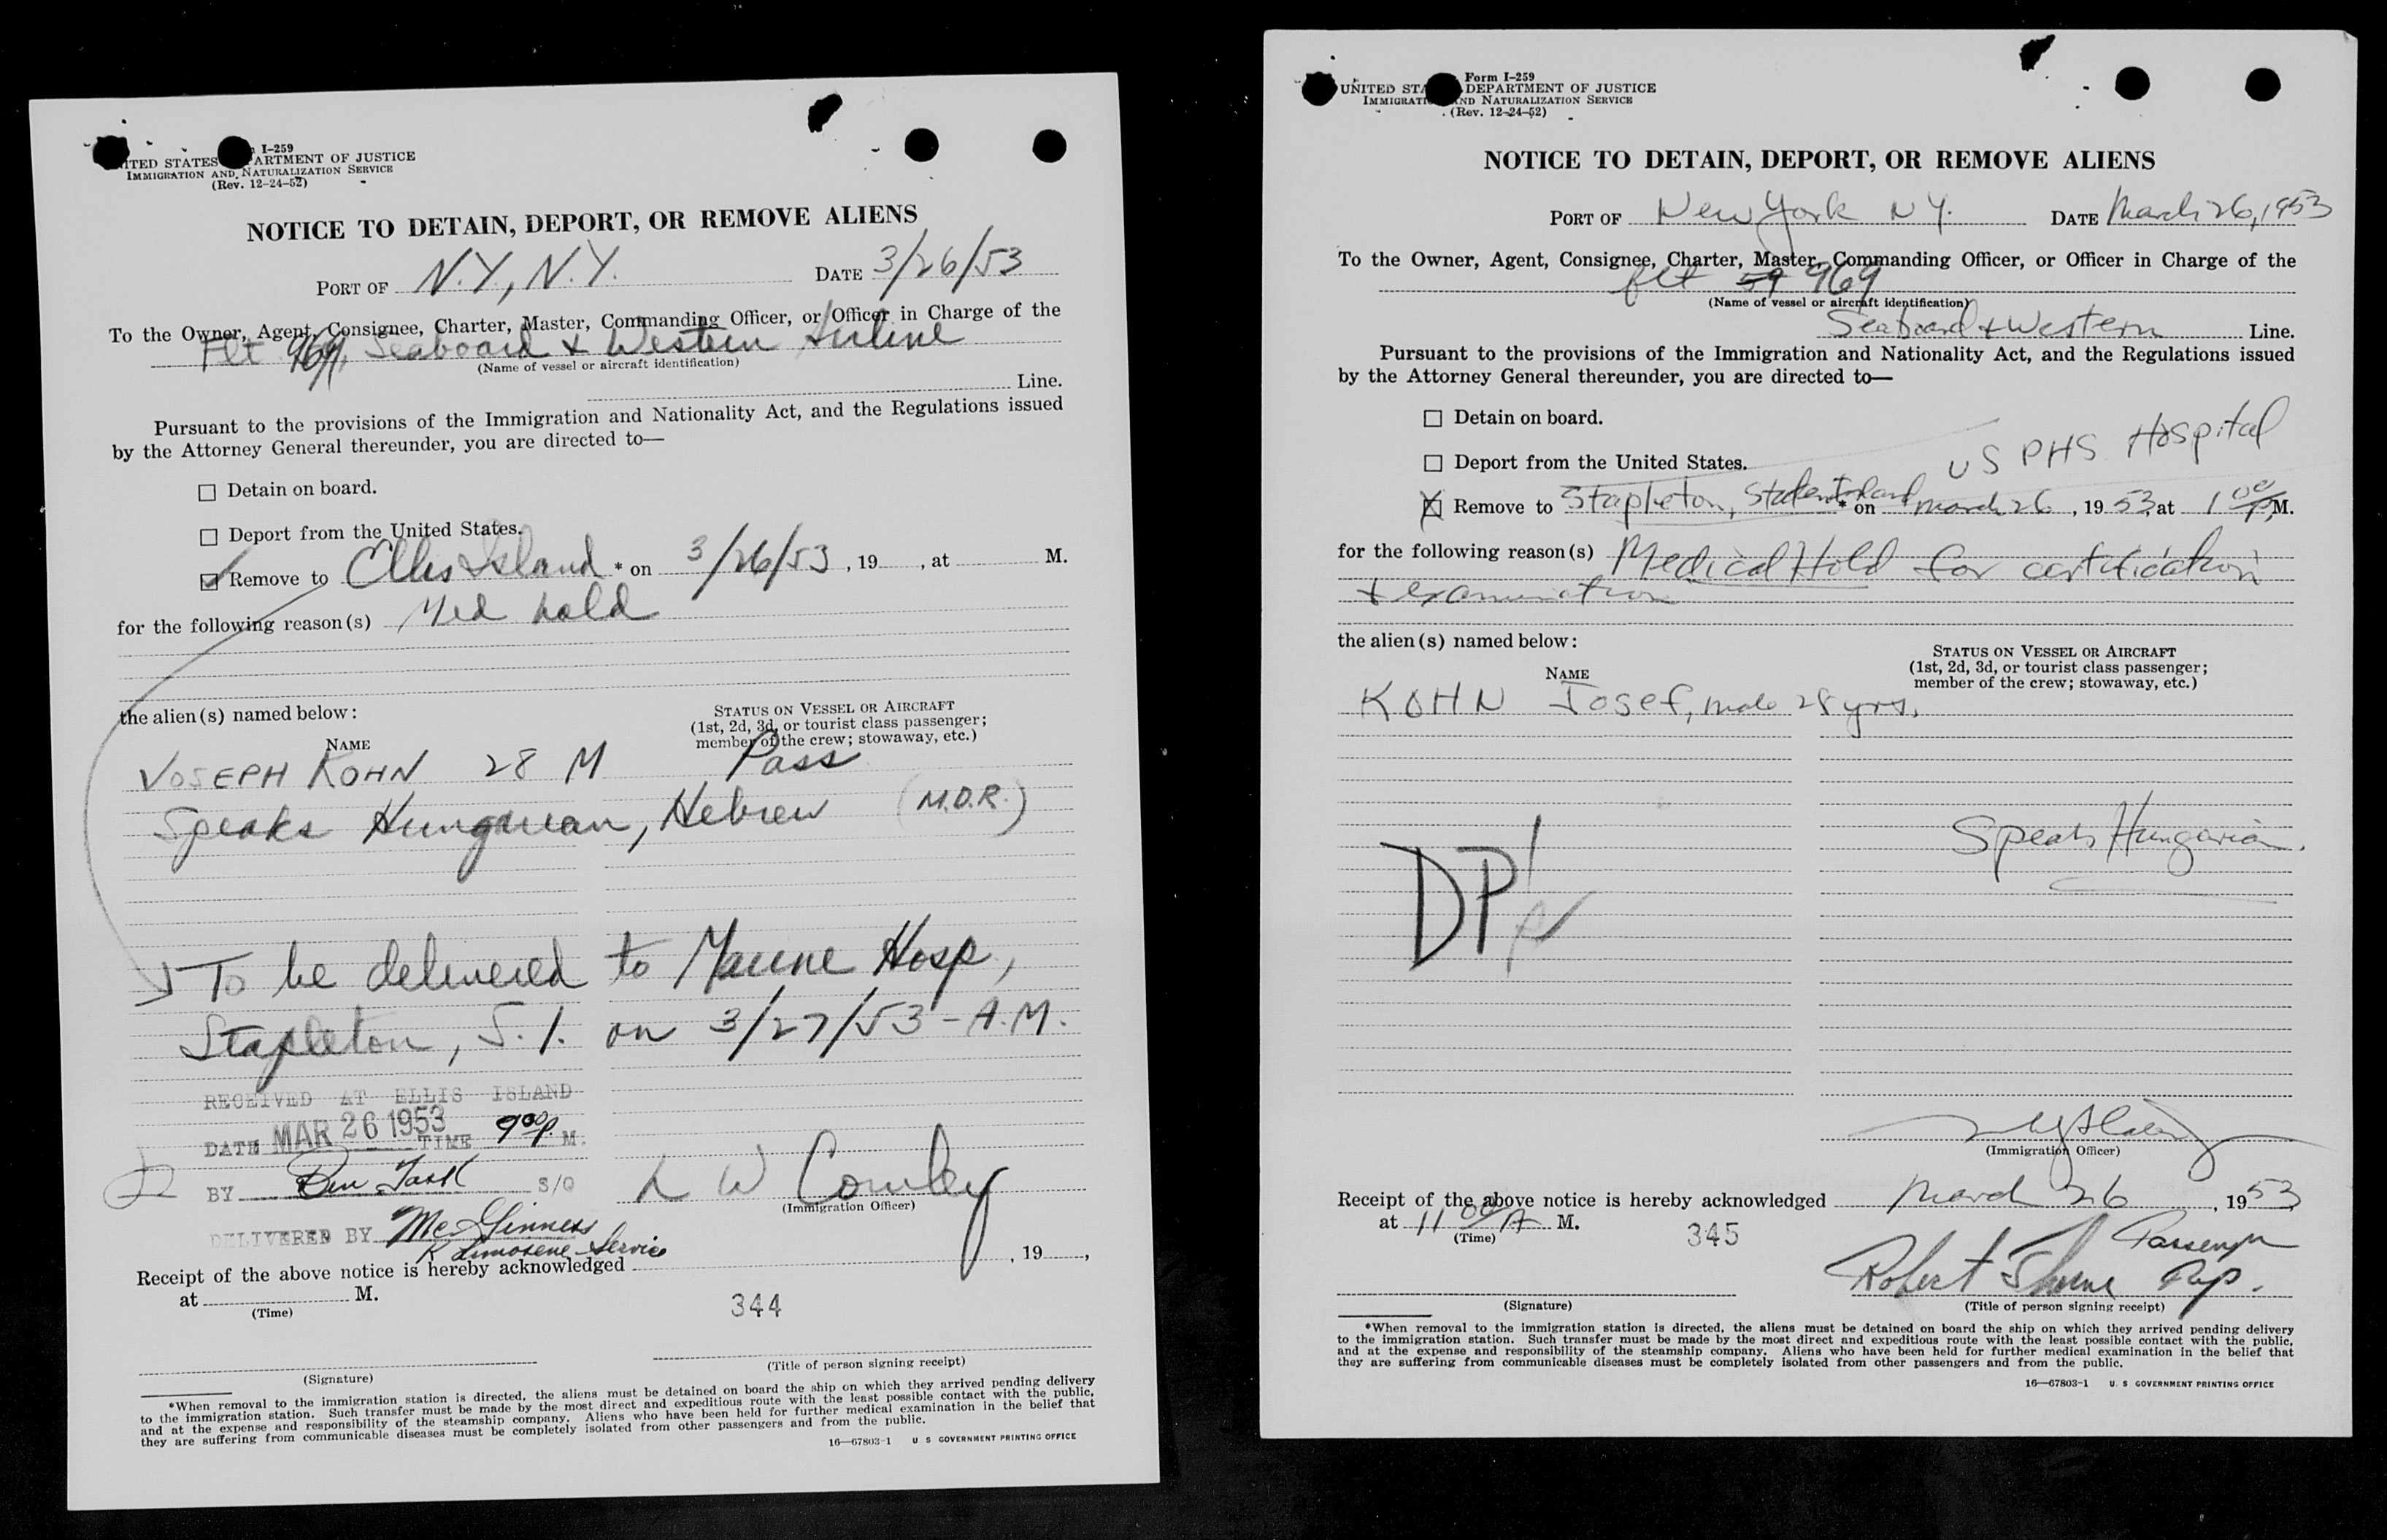 I-259
ITED STATES ARTMENT OF JUSTICE
IMMIGRATION AND NATURALIZATION SERVICE
(Rev. 12-24-52)
NOTICE TO DETAIN, DEPORT, OR REMOVE ALIENS
PORT OF N.Y., N.Y. DATE 3/26/53
To the Owner, Agent, Consignee, Charter, Master, Commanding Officer, or Officer in Charge of the
Flt 969, Seaboard & Western Airline
(Name of vessel or aircraft identification)
Line.
Pursuant to the provisions of the Immigration and Nationality Act, and the Regulations issued
by the Attorney General thereunder, you are directed to—
☐ Detain on board.
☐ Deport from the United States.
☑ Remove to Ellis Island * on 3/26/53, 19 , at M.
for the following reason(s) Med hold
the alien(s) named below:
NAME
STATUS ON VESSEL OR AIRCRAFT
(1st, 2d, 3d, or tourist class passenger;
member of the crew; stowaway, etc.)
JOSEPH KOHN 28 M Pass
Speaks Hungarian, Hebrew (M.D.R.)
To be delivered to Marine Hosp,
Stapleton, S.I. on 3/27/53 - A.M.
RECEIVED AT ELLIS ISLAND
DATE MAR 26 1953 TIME 9 00 P. M.
BY Ben S/O
L W Cowley
(Immigration Officer)
DELIVERED BY McGinness
K Limosene Service
Receipt of the above notice is hereby acknowledged , 19 ,
at M.
(Time)
344
(Signature)
(Title of person signing receipt)
*When removal to the immigration station is directed, the aliens must be detained on board the ship on which they arrived pending delivery
to the immigration station. Such transfer must be made by the most direct and expeditious route with the least possible contact with the public,
and at the expense and responsibility of the steamship company. Aliens who have been held for further medical examination in the belief that
they are suffering from communicable diseases must be completely isolated from other passengers and from the public.
16—67803-1 U S GOVERNMENT PRINTING OFFICE
Form I-259
UNITED STA DEPARTMENT OF JUSTICE
IMMIGRATI ND NATURALIZATION SERVICE
(Rev. 12-24-52)
NOTICE TO DETAIN, DEPORT, OR REMOVE ALIENS
PORT OF New York N Y. DATE March 26, 1953
To the Owner, Agent, Consignee, Charter, Master, Commanding Officer, or Officer in Charge of the
flt 59 969
(Name of vessel or aircraft identification)
Seaboard & Western Line.
Pursuant to the provisions of the Immigration and Nationality Act, and the Regulations issued
by the Attorney General thereunder, you are directed to—
☐ Detain on board.
☐ Deport from the United States.
US PHS Hospital
☒ Remove to Stapleton, Staten Island * on March 26, 1953, at 1 00 P M.
for the following reason(s) Medical Hold for certification
& examination
the alien(s) named below:
NAME
STATUS ON VESSEL OR AIRCRAFT
(1st, 2d, 3d, or tourist class passenger;
member of the crew; stowaway, etc.)
KOHN Josef, male 28 yrs.
Speaks Hungarian.
DP
(Immigration Officer)
Receipt of the above notice is hereby acknowledged March 26, 1953
at 11 00 A M.
(Time)
345
Passenger
Robert Rep.
(Signature)
(Title of person signing receipt)
*When removal to the immigration station is directed, the aliens must be detained on board the ship on which they arrived pending delivery
to the immigration station. Such transfer must be made by the most direct and expeditious route with the least possible contact with the public,
and at the expense and responsibility of the steamship company. Aliens who have been held for further medical examination in the belief that
they are suffering from communicable diseases must be completely isolated from other passengers and from the public.
16—67803-1 U. S GOVERNMENT PRINTING OFFICE